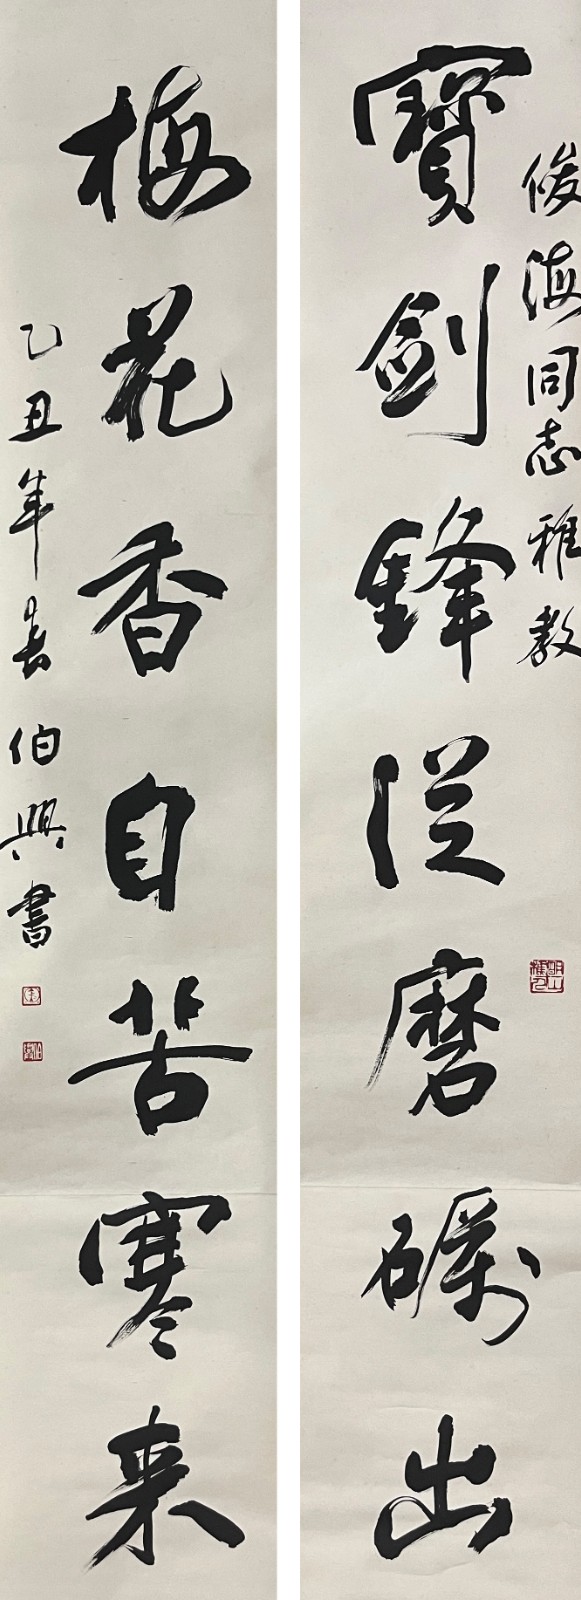 俊海同志雅教
寶劍鋒從磨礪出
梅花香自苦寒来
乙丑年春伯興書